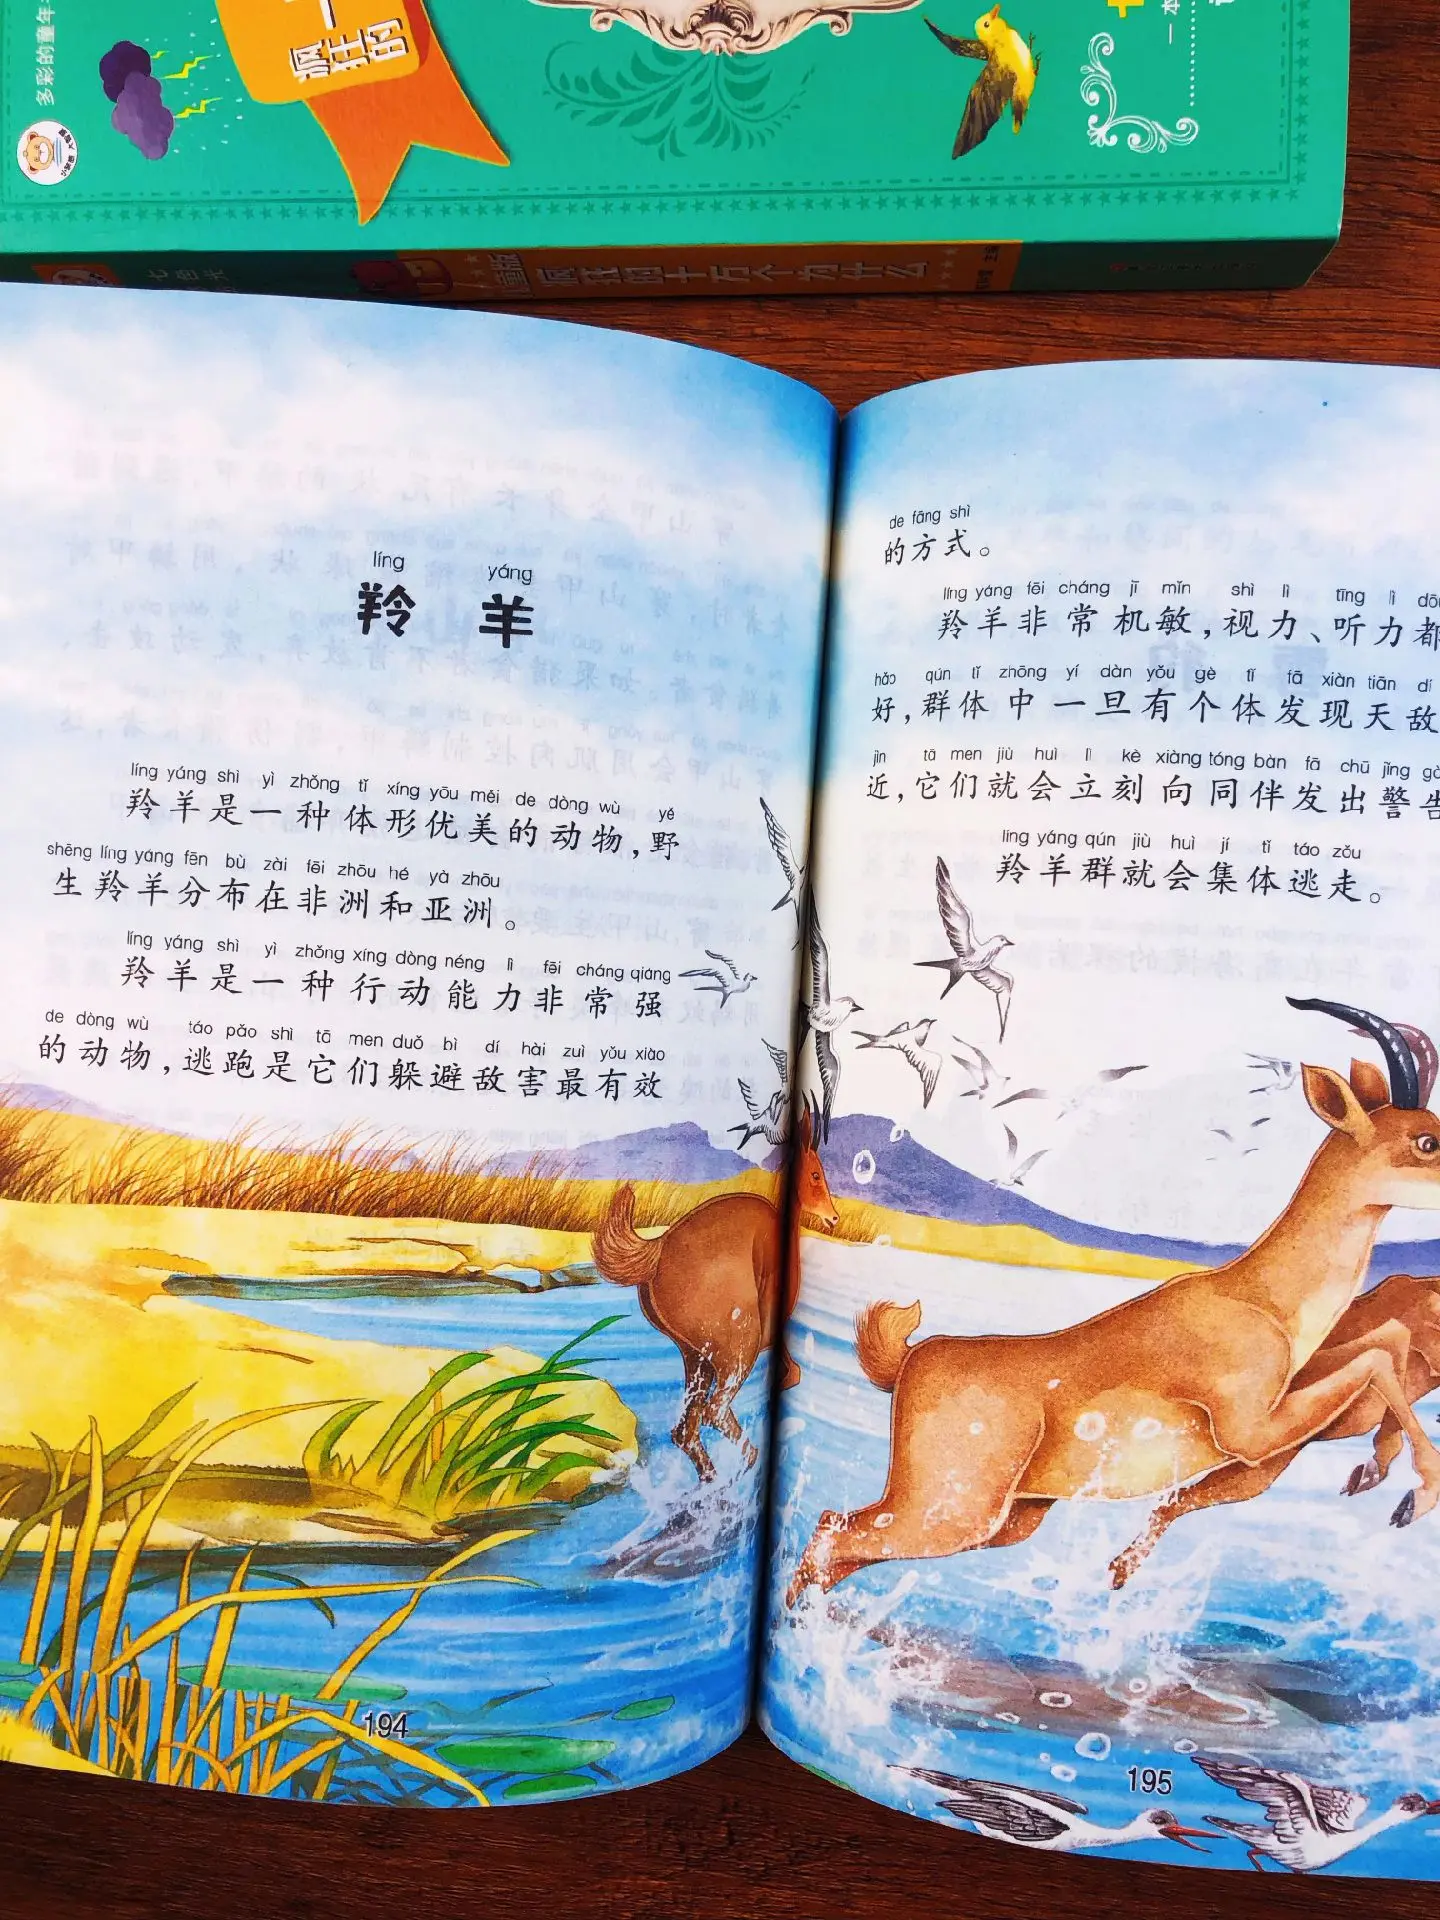 多彩的童年
疯狂的
一本
疯狂的十万个为什么
líng yáng
羚羊
líng yáng shì yì zhǒng tǐ xíng yōu měi de dòng wù yě
羚羊是一种体形优美的动物,野
shēng líng yáng fēn bù zài fēi zhōu hé yà zhōu
生羚羊分布在非洲和亚洲。
líng yáng shì yì zhǒng xíng dòng néng lì fēi cháng qiáng
羚羊是一种行动能力非常强
de dòng wù táo pǎo shì tā men duǒ bì dí hài zuì yǒu xiào
的动物,逃跑是它们躲避敌害最有效
194
de fāng shì
的方式。
líng yáng fēi cháng jī mǐn shì lì tīng lì dō
羚羊非常机敏,视力、听力都
hǎo qún tǐ zhōng yí dàn yǒu gè tǐ fā xiàn tiān dí
好,群体中一旦有个体发现天敌
jìn tā men jiù huì lì kè xiàng tóng bàn fā chū jǐng gà
近,它们就会立刻向同伴发出警告
líng yáng qún jiù huì jí tǐ táo zǒu
羚羊群就会集体逃走。
195